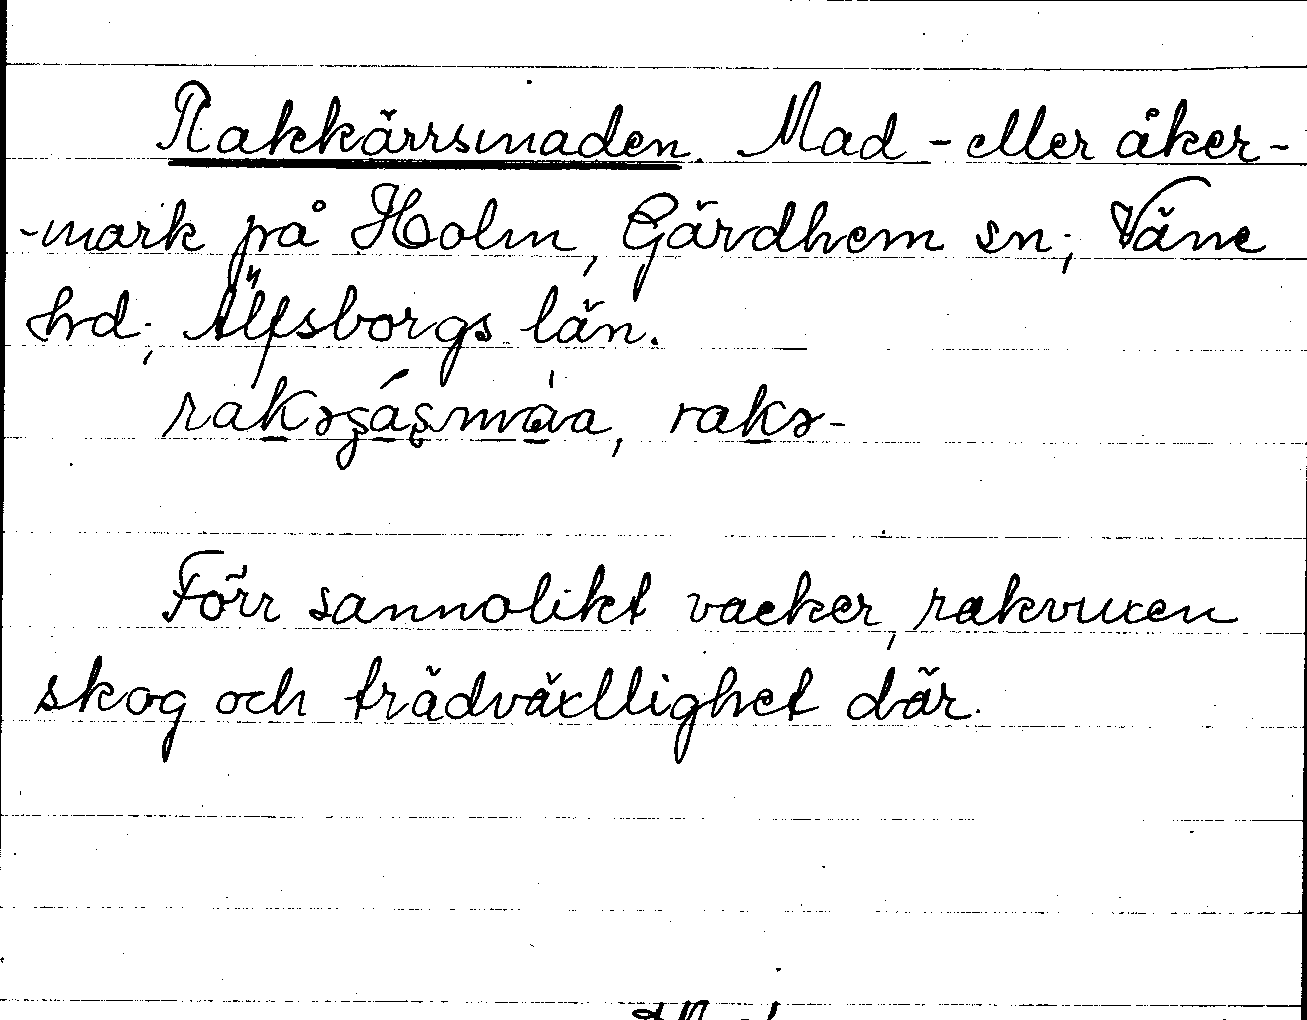 Rakkärrsmaden. Mad- eller åker-
-mark på Holm, Gärdhem sn; Väne
hd; Älfsborgs län.
Förr sannolikt vacker, rakvuxen
skog och trädväxtlighet där.